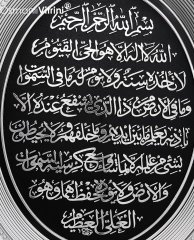 بسم الله الرحمن الرحيم
الله لا اله الا هو الحي القيوم
لا تأخذه سنة ولا نوم له ما في السموات
وما في الارض من ذا الذي يشفع عنده الا
باذنه يعلم ما بين ايديهم وما خلفهم ولا يحيطون
بشيء من علمه الا بما شاء وسع كرسيه السموات
والارض ولا يؤده حفظهما وهو
العلي العظيم